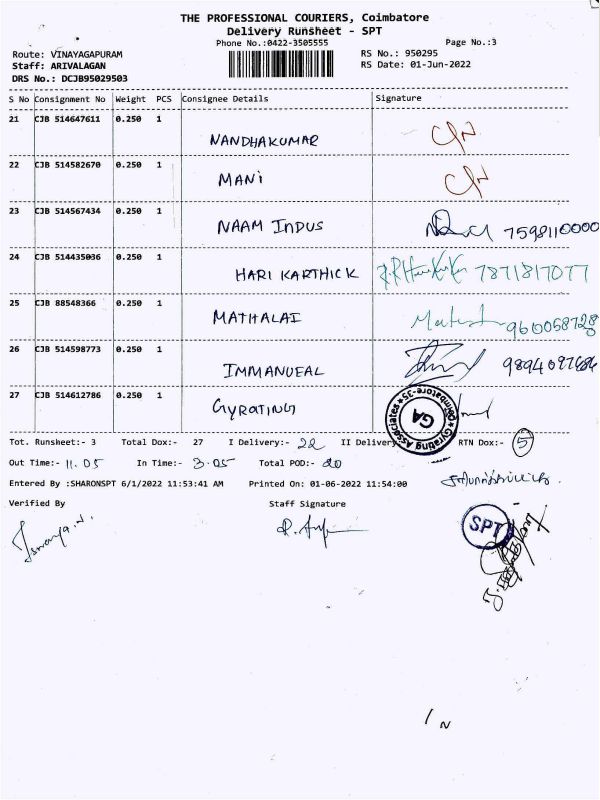 THE PROFESSIONAL COURIERS, Coimbatore
Delivery Runsheet - SPT
Phone No.:0422-3505555 Page No.:3
Route: VINAYAGAPURAM RS No.: 950295
Staff: ARIVALAGAN RS Date: 01-Jun-2022
DRS No.: DCJB95029503
S No Consignment No Weight PCS Consignee Details Signature
21 CJB 514647611 0.250 1
NANDHAKUMAR
22 CJB 514582670 0.250 1
MANi
23 CJB 514567434 0.250 1
NAAM INDUS 7598110000
24 CJB 514435036 0.250 1
HARI KARTHICK 7871817077
25 CJB 88548366 0.250 1
MATHALAI
26 CJB 514598773 0.250 1
IMMANUEAL
27 CJB 514612786 0.250 1
GYRATING
Gyrating Associates ★ Coimbatore-35 ★
GA
Tot. Runsheet:- 3 Total Dox:- 27 I Delivery:- 22 II Delivery RTN Dox:- 5
Out Time:- 11.05 In Time:- 3.05 Total POD:- 20
Entered By :SHARONSPT 6/1/2022 11:53:41 AM Printed On: 01-06-2022 11:54:00
Verified By Staff Signature
SPT